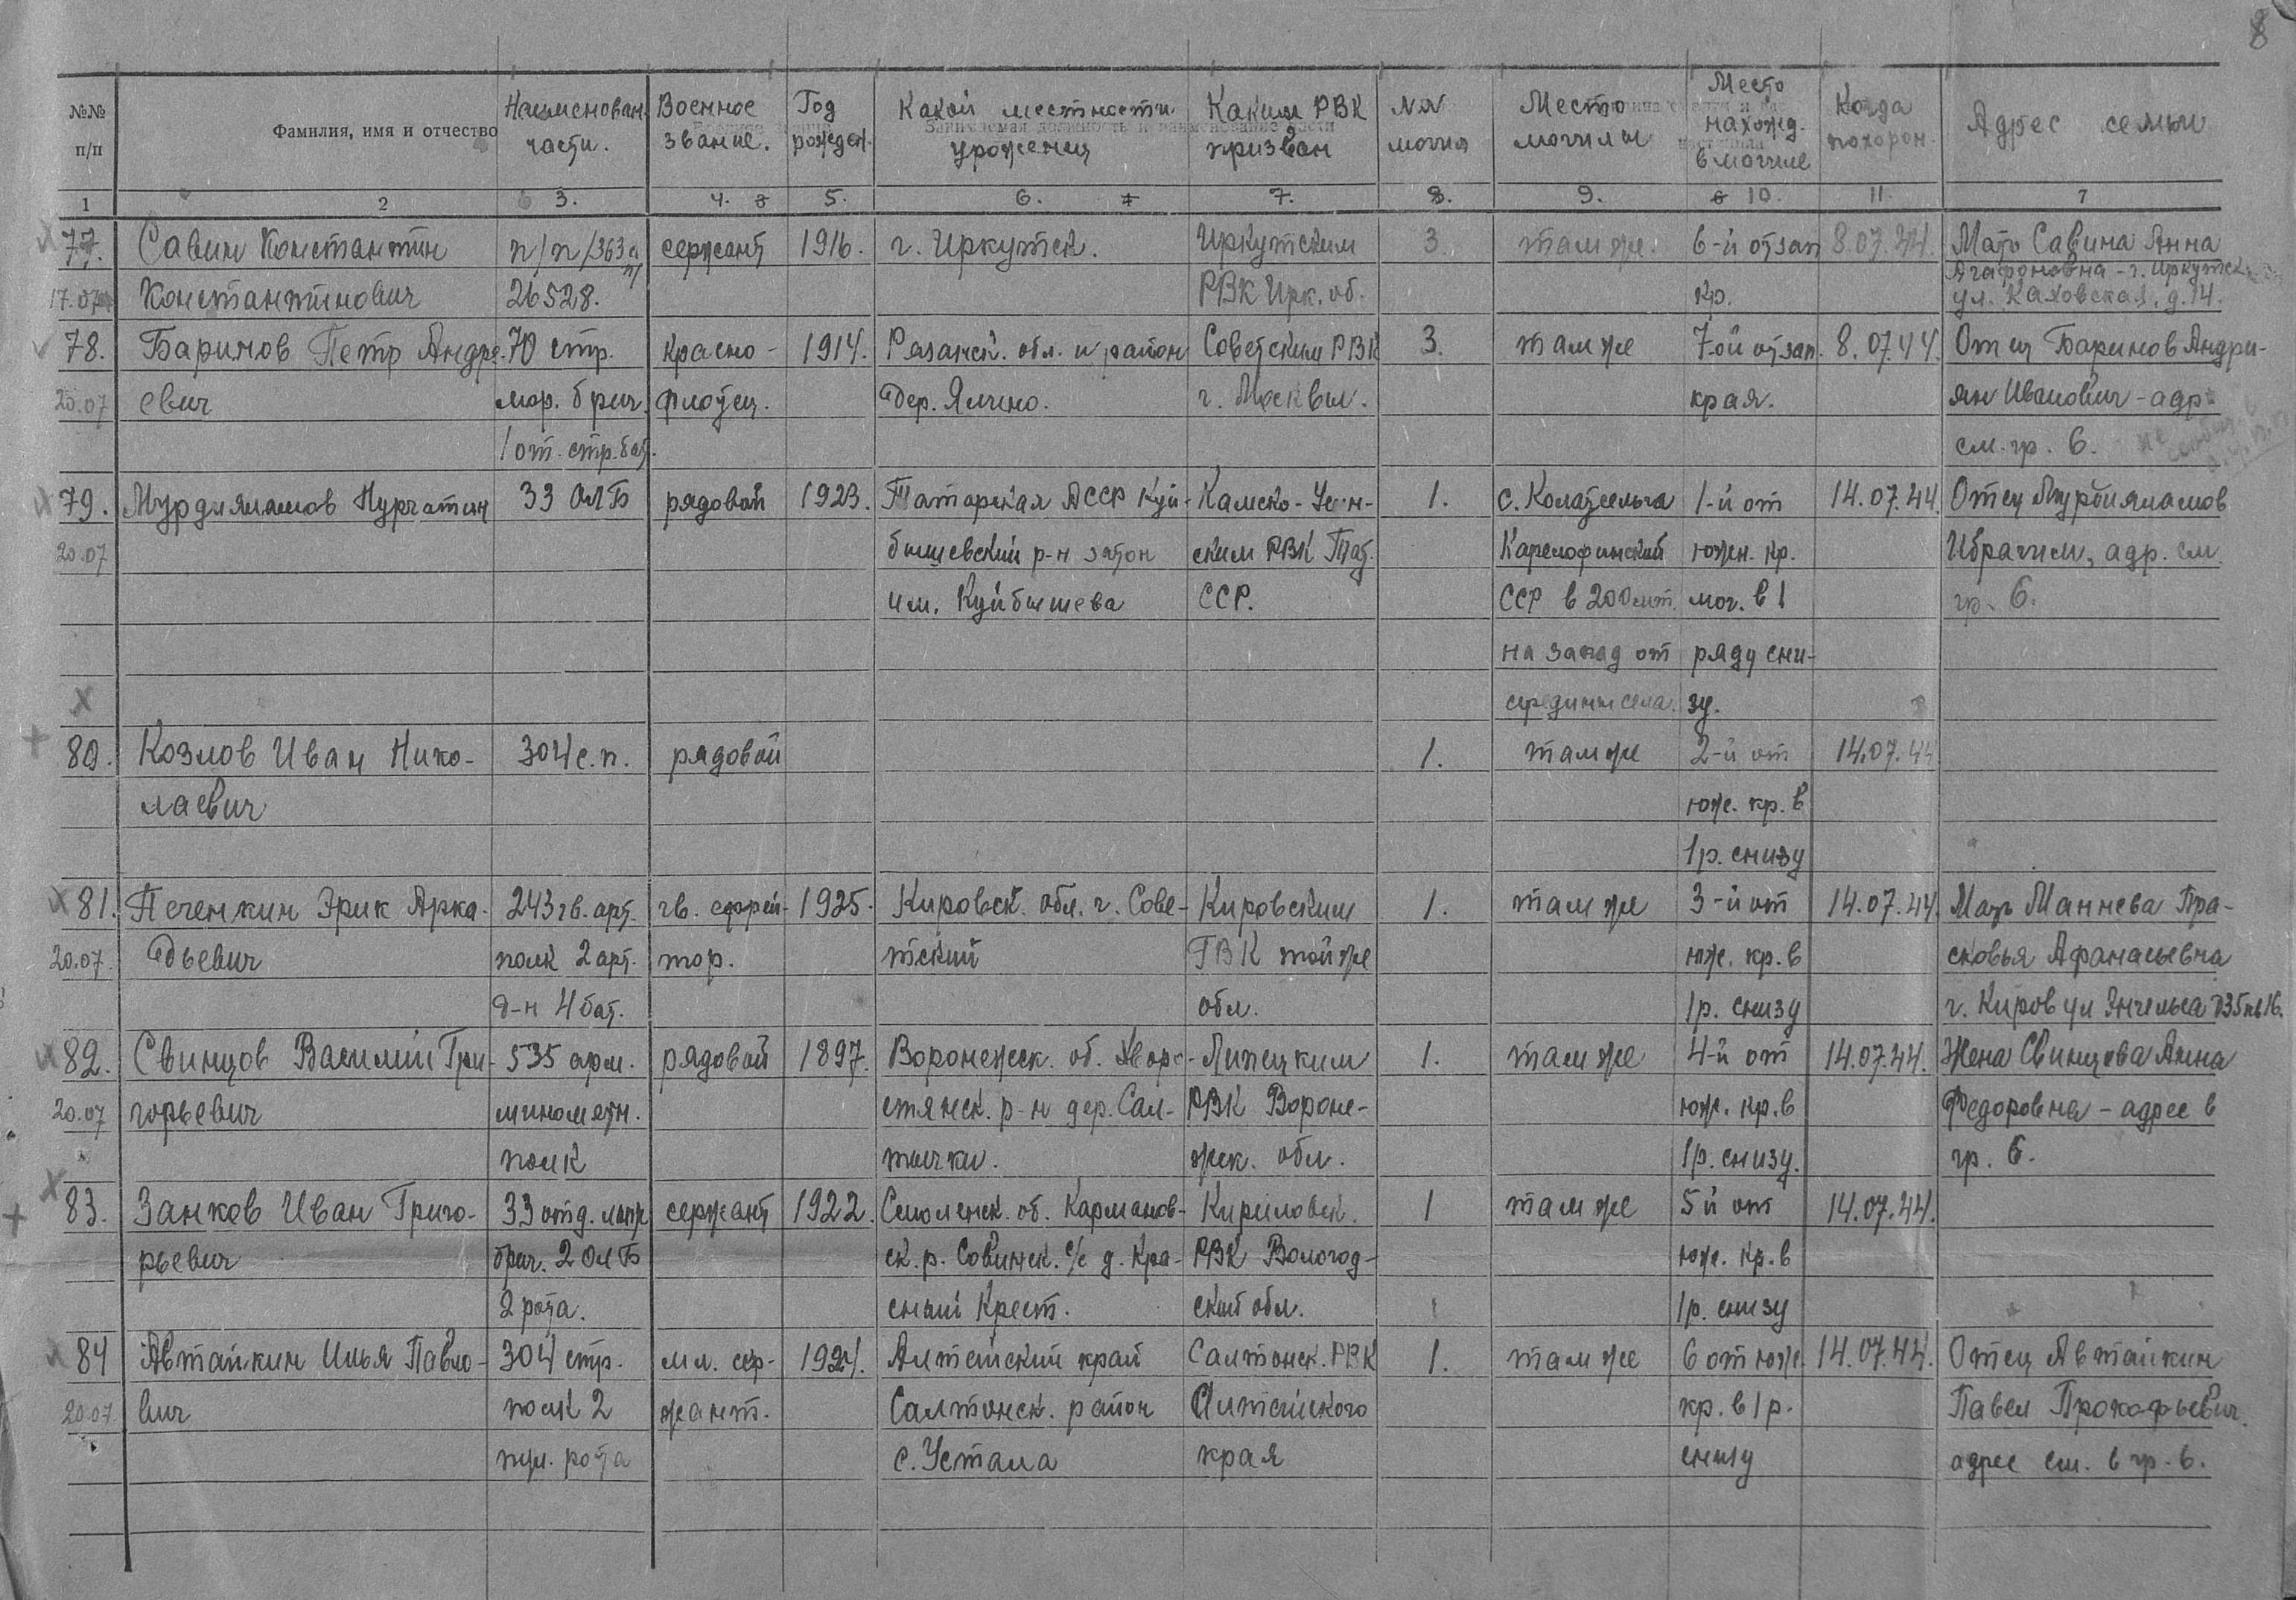 8
№№ п/п | Фамилия, имя и отчество | Наименован. части. | Военное звание. | Год рожден. | Какой местности уроженец | Каким РВК призван | NN могил | Место могилы | Место нахожд. в могиле | Когда похорон. | Адрес семьи
1 | 2 | 3. | 4. | 5. | 6. | 7. | 8. | 9. | 10. | 11 | 7
77. | Савин Константин | п/п/363 | сержант | 1916. | г. Иркутск. | Иркутским | 3 | там же. | 6-й от зап | 8.07.44. | Мать Савина Анна
Агафоновна - г. Иркутск
17.07 | Константинович | 26528. | РВК Ирк. об. | кр. | ул. Каховская, д. 14.
78. | Баринов Петр Андре- | 70 стр. | красно- | 1914. | Рязанск. обл. и район | Советским РВК | 3. | там же | 7-ой от зап. | 8.07.44. | Отец Баринов Андри-
20.07 | евич | мор. бриг. | флотец. | дер. Ялино. | г. Москвы. | края. | ян Иванович - адр
1 от. стр. бат. | см. гр. 6.
79. | Мурдиямамов Нургатин | 33 ОЛБ | рядовой | 1923. | Татарская АССР Куй- | Камско-Устин- | 1. | с. Колатсельга | 1-й от | 14.07.44. | Отец
20.07 | бышевский р-н затон | ским РВК Тат. | Карелофинский | южн. кр. | Ибрагим, адр. см.
им. Куйбышева | ССР. | ССР в 200 мт. | мог. в 1 | гр. 6.
на запад от | ряду сни-
середины села. | зу.
80. | Козлов Иван Нико- | 304 с.п. | рядовой | 1. | там же | 2-й от | 14.07.44
лаевич | юж. кр. в
1 р. снизу
81. | Печенкин Эрик Арка- | 243 гв. арт. | гв. ефрей- | 1925. | Кировск. обл. г. Сове- | Кировским | 1. | там же | 3-й от | 14.07.44. | Мать Маннева Пра-
20.07. | дьевич | полк 2 арт. | тор. | тский | ГВК той же | юж. кр. в | сковья Афанасьевна
д-н 4 бат. | обл. | 1 р. снизу | г. Киров ул Энгельса д35 кв 16.
82. | Свинцов Василий Гри- | 535 арм. | рядовой | 1897. | Воронежск. об. | Липецким | 1. | там же | 4-й от | 14.07.44. | Жена Свинцова Анна
20.07 | горьевич | минометн. | стянск. р-н дер. Сал- | РВК Вороне- | юж. кр. в | Федоровна - адрес в
полк | тычки. | жск. обл. | 1 р. снизу. | гр. 6.
83. | Занков Иван Григо- | 33 отд. лыж | сержант | 1922. | Смоленск. об. Карманов- | Кириловск. | 1 | там же | 5 й от | 14.07.44.
рьевич | бриг. 2 ОЛБ | ск. р. Совинск. с/с д. Кра- | РВК Вологод- | юж. кр. в
2 рота. | сный Крест. | ской обл. | 1 р. снизу
84 | Автайкин Илья Павло- | 304 стр. | мл. сер- | 1924. | Алтайский край | Салтонск. РВК | 1. | там же | 6 от юж. | 14.07.44. | Отец Автайкин
20.07 | вич | полк 2 | жант. | Салтонск. район | Алтайского | кр. в 1 р. | Павел Прокофьевич.
пул. рота | с. Устала | края | снизу | адрес см. в гр. 6.